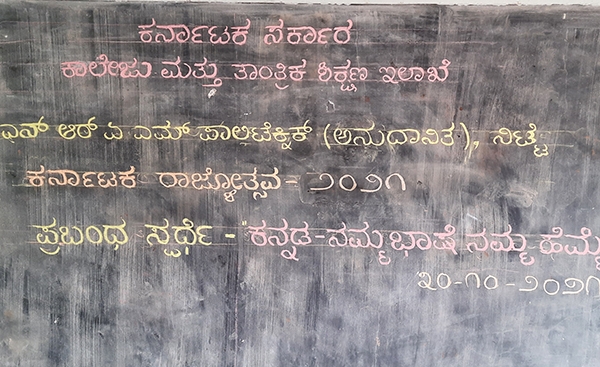 ಕರ್ನಾಟಕ ಸರ್ಕಾರ
ಕಾಲೇಜು ಮತ್ತು ತಾಂತ್ರಿಕ ಶಿಕ್ಷಣ ಇಲಾಖೆ
ಎನ್ ಆರ್ ಎ ಎಮ್ ಪಾಲಿಟೆಕ್ನಿಕ್ (ಅನುದಾನಿತ), ನಿಟ್ಟೆ
ಕರ್ನಾಟಕ ರಾಜ್ಯೋತ್ಸವ - ೨೦೨೧
ಪ್ರಬಂಧ ಸ್ಪರ್ಧೆ - "ಕನ್ನಡ - ನಮ್ಮ ಭಾಷೆ ನಮ್ಮ ಹೆಮ್ಮೆ
೩೦-೧೦-೨೦೨೧